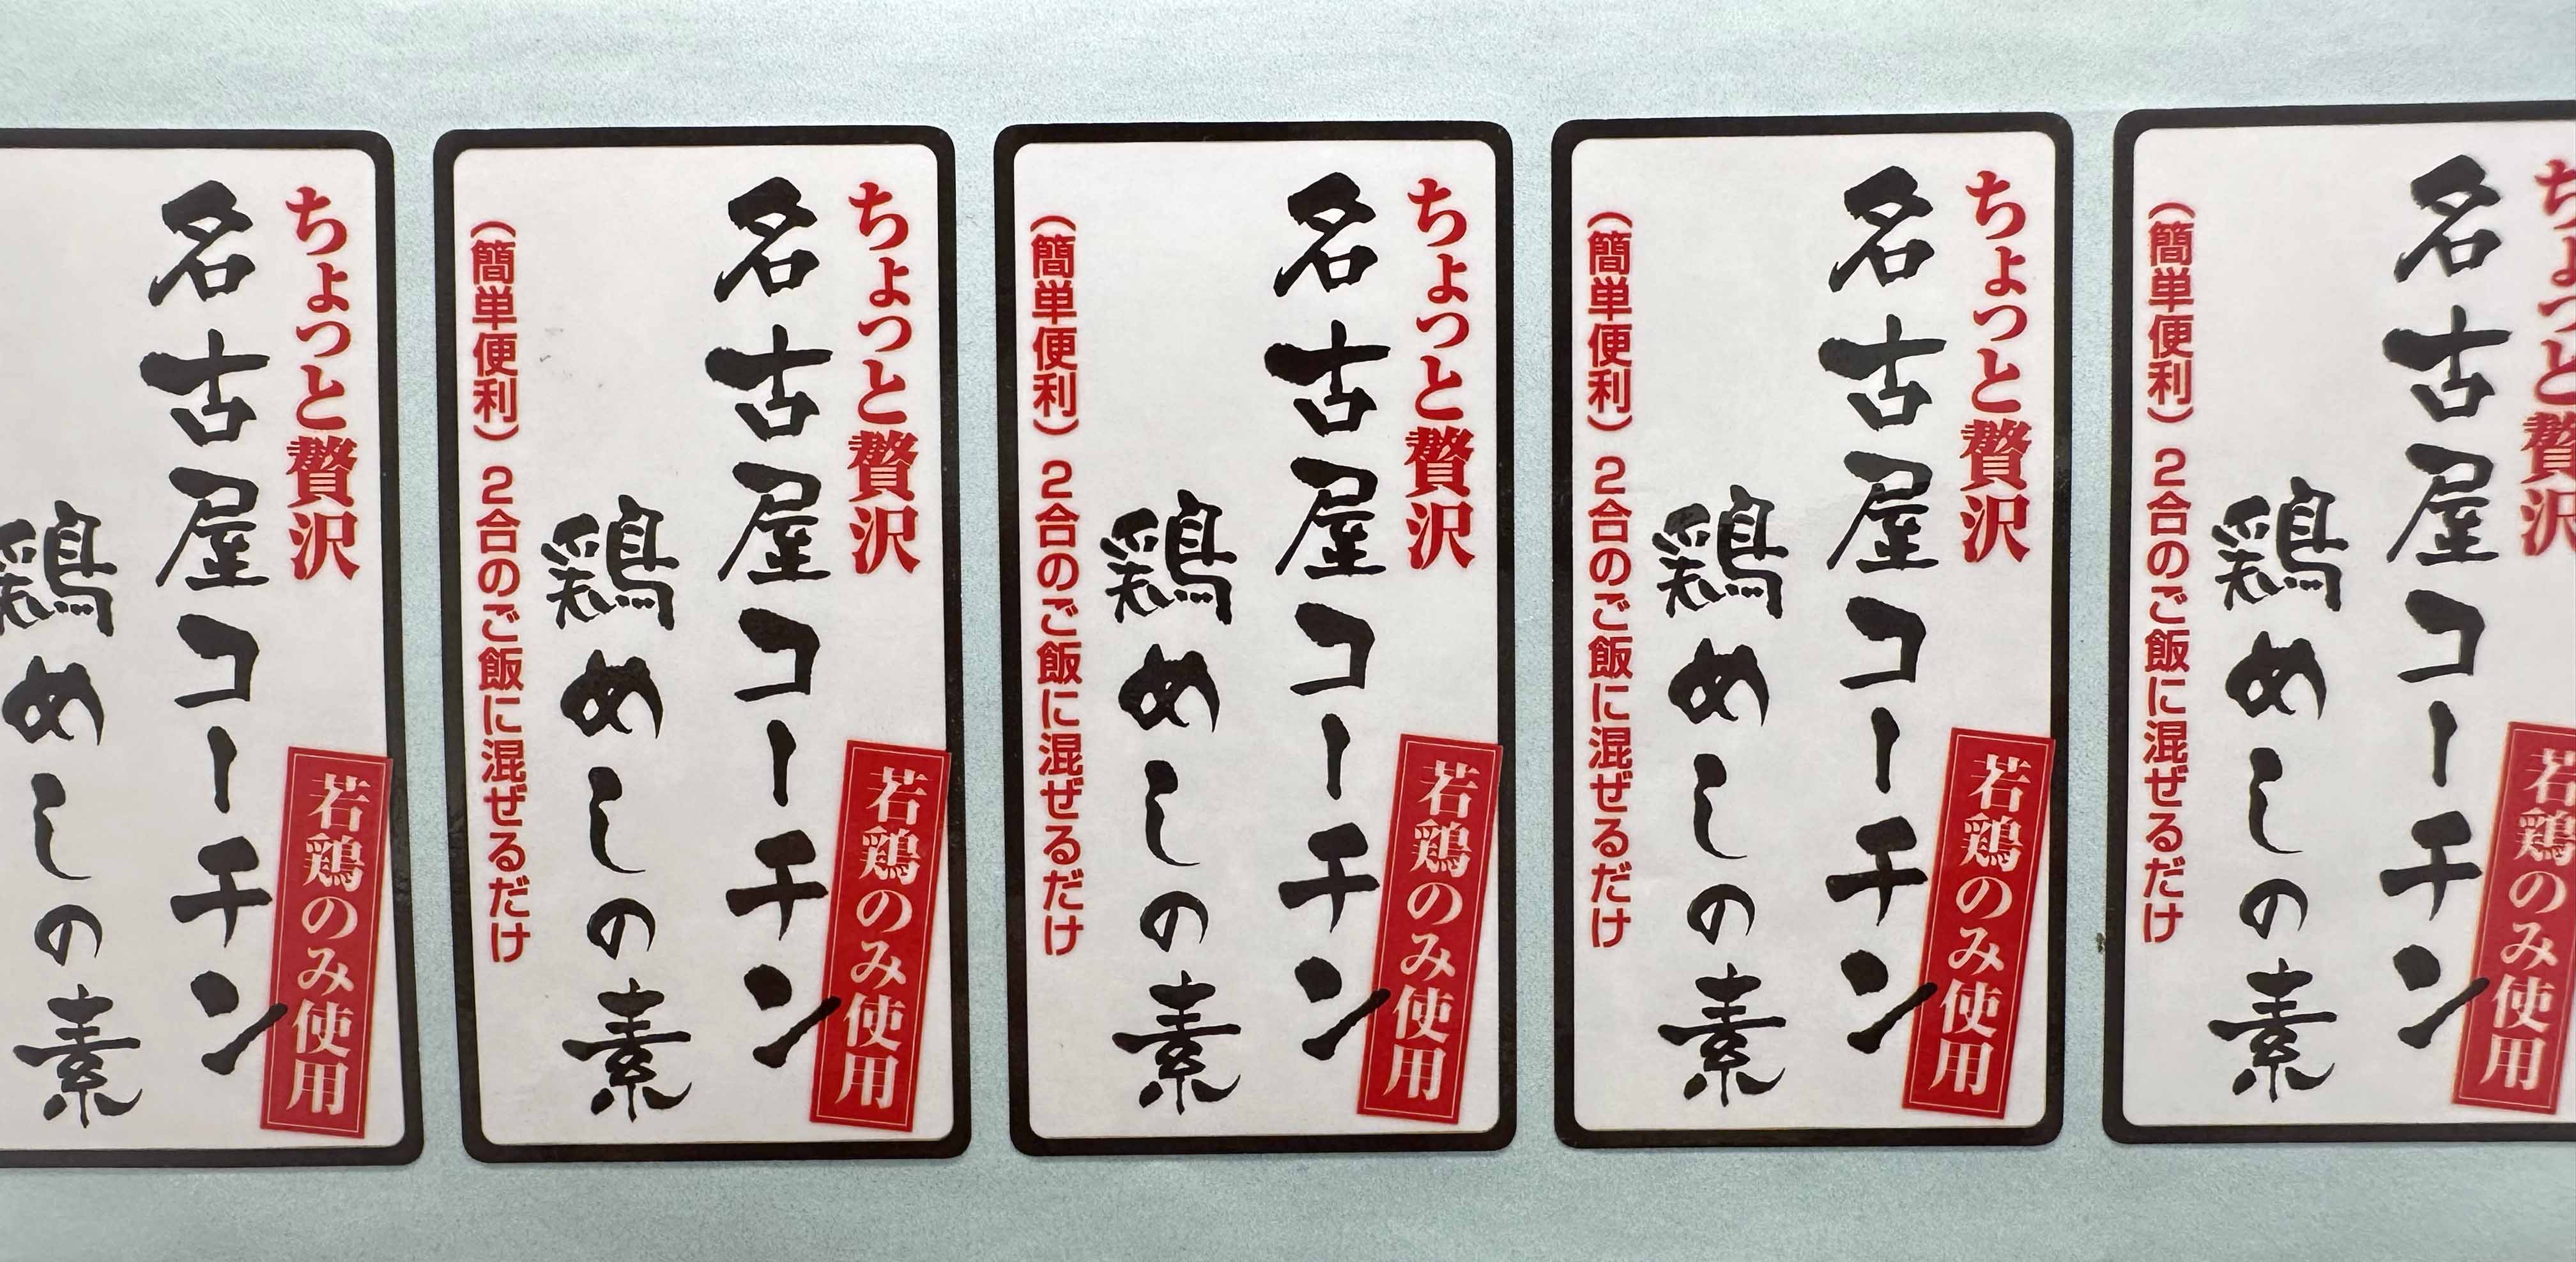 ちょっと贅沢
名古屋コーチン
鶏めしの素
若鶏のみ使用
ちょっと贅沢
名古屋コーチン
鶏めしの素
(簡単便利) 2合のご飯に混ぜるだけ
若鶏のみ使用
ちょっと贅沢
名古屋コーチン
鶏めしの素
(簡単便利) 2合のご飯に混ぜるだけ
若鶏のみ使用
ちょっと贅沢
名古屋コーチン
鶏めしの素
(簡単便利) 2合のご飯に混ぜるだけ
若鶏のみ使用
ちょっと贅沢
名古屋コーチン
鶏めしの素
(簡単便利) 2合のご飯に混ぜるだけ
若鶏のみ使用